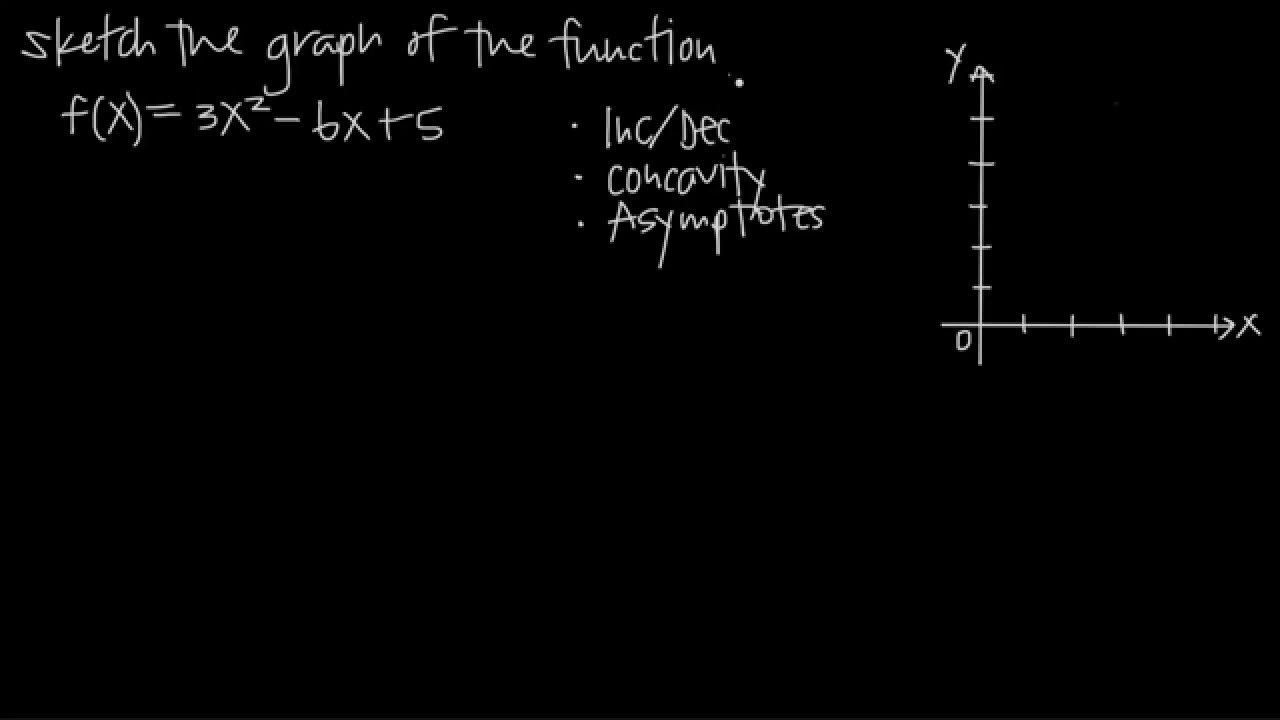 sketch the graph of the function.
f(x) = 3x² - 6x + 5
· Inc/Dec
· concavity
· Asymptotes
Y
0
X